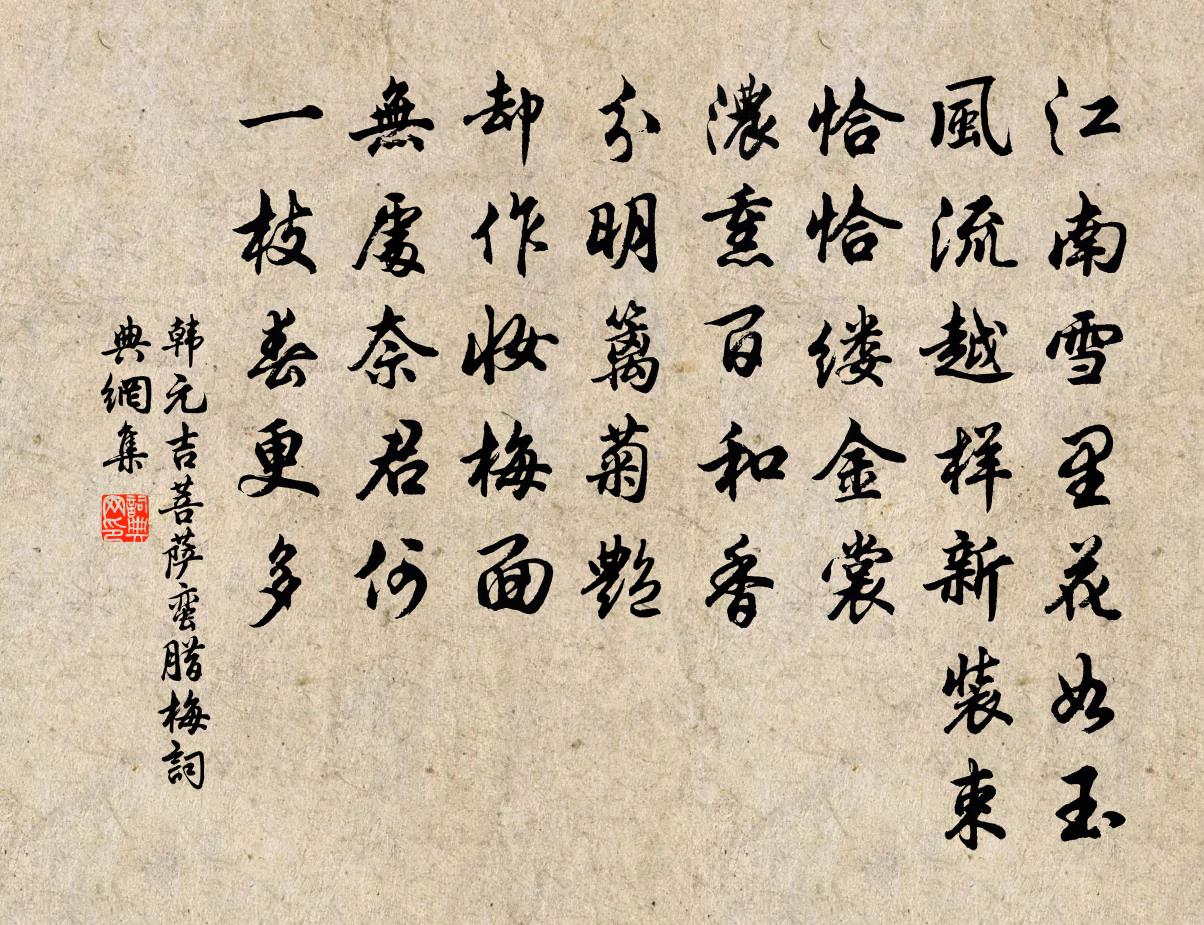 江南雪里花如玉
風流越样新装束
恰恰缕金裳
濃熏百和香
分明篱菊艷
却作妆梅面
無處奈君何
一枝春更多
韩元吉菩萨蛮腊梅詞
典網集
詞典
网印